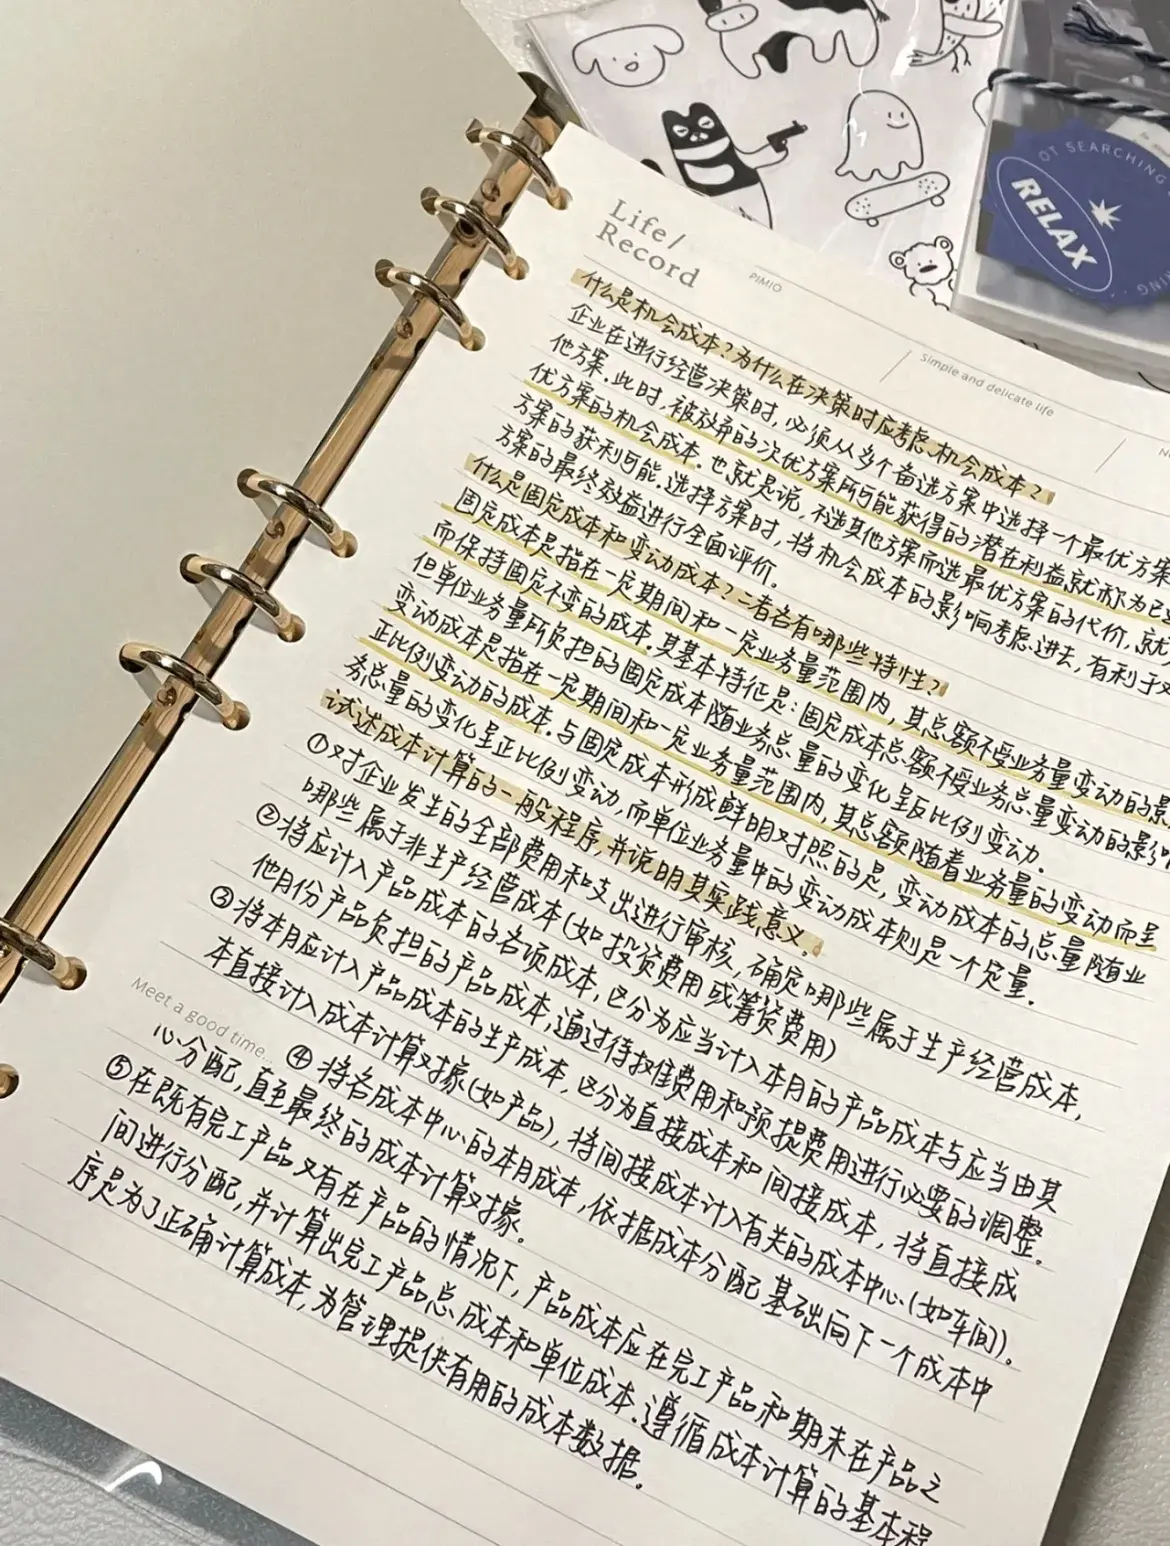 OT SEARCHING
RELAX
Life/
Record
PIMIO
Simple and delicate life
什么是机会成本？为什么在决策时应考虑机会成本？
企业在进行经营决策时，必须从多个备选方案中选择一个最优方案
他方案．此时，被放弃的次优方案所可能获得的潜在利益就称为已
优方案的机会成本．也就是说，不选其他方案而选最优方案的代价，就
方案的获利可能．选择方案时，将机会成本的影响考虑进去，有利于
方案的最终效益进行全面评价．
什么是固定成本和变动成本？二者各有哪些特性？
固定成本是指在一定期间和一定业务量范围内，其总额不受业务量变动的
而保持固定不变的成本．其基本特征是：固定成本总额不受业务总量变动的影响
但单位业务量所负担的固定成本随业务总量的变化呈反比例变动．
变动成本是指在一定期间和一定业务量范围内，其总额随着业务量的变动而呈
正比例变动的成本．与固定成本形成鲜明对照的是，变动成本的总量随业
务总量的变化呈正比例变动，而单位业务量中的变动成本则是一个定量．
试述成本计算的一般程序，并说明其实践意义．
①对企业发生的全部费用和支出进行审核，确定哪些属于生产经营成本，
哪些属于非生产经营成本（如投资费用或筹资费用）
②将应计入产品成本的各项成本，区分为应当计入本月的产品成本与应当由其
他月份产品负担的产品成本，通过待摊费用和预提费用进行必要的调整．
③将本月应计入产品成本的生产成本，区分为直接成本和间接成本，将直接成
本直接计入成本计算对象（如产品），将间接成本计入有关的成本中心（如车间）。
Meet a good time...
④将各成本中心的本月成本，依据成本分配基础向下一个成本中
心分配，直至最终的成本计算对象．
⑤在既有完工产品又有在产品的情况下，产品成本应在完工产品和期末在产品之
间进行分配，并计算出完工产品总成本和单位成本．遵循成本计算的基本程
序是为了正确计算成本，为管理提供有用的成本数据．